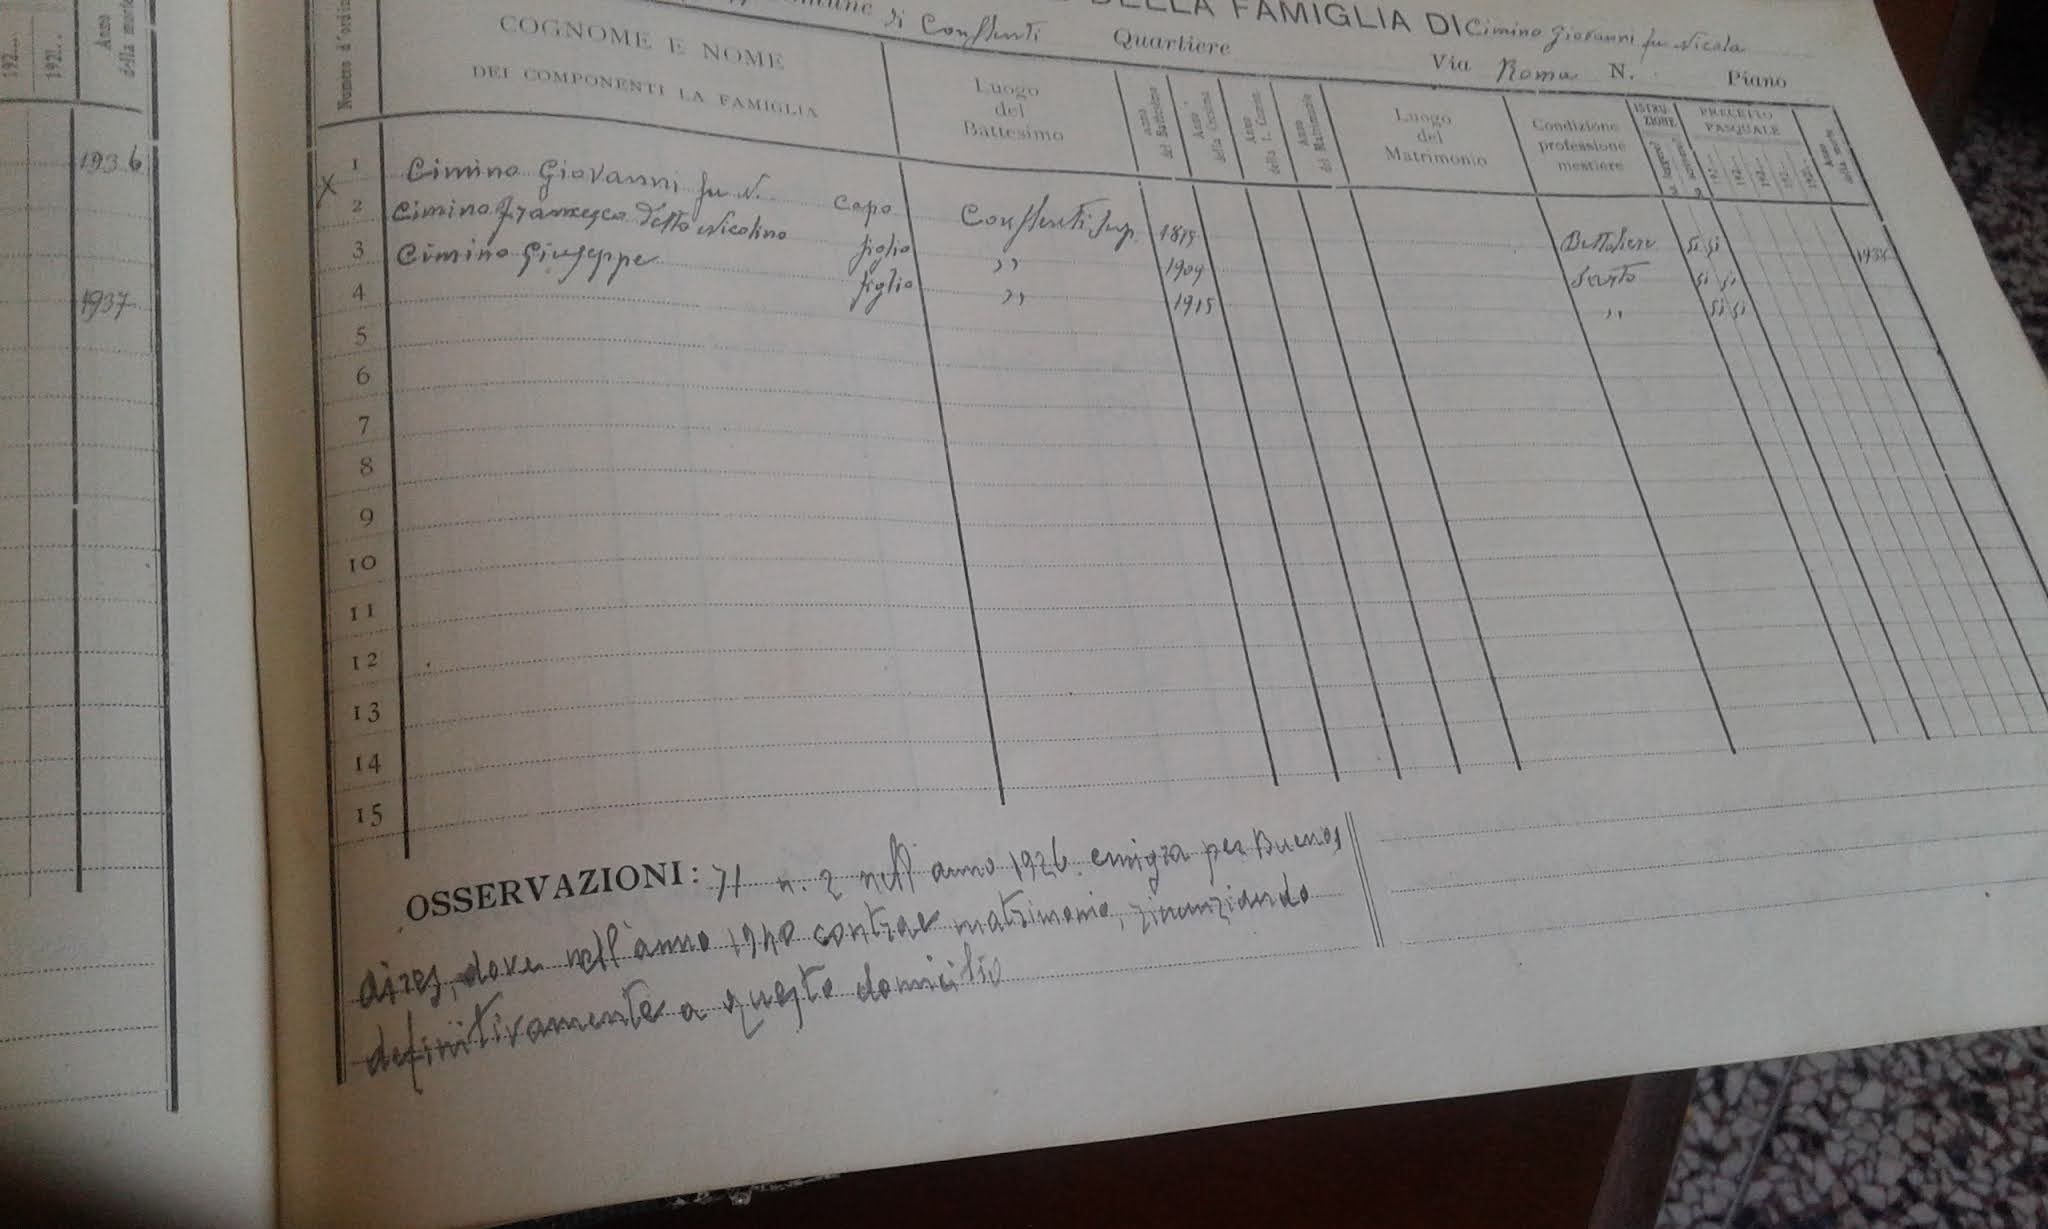 192...
192...
Anno della morte
1936
1937
DELLA FAMIGLIA DI Cimino Giovanni fu Nicola
di Conflenti Quartiere Via Roma N. Piano
Numero d'ordin
COGNOME E NOME
DEI COMPONENTI LA FAMIGLIA
Luogo del Battesimo
Anno del Battesimo
Anno della Cresima
Anno della 1. Comun.
Anno del Matrimonio
Luogo del Matrimonio
Condizione professione mestiere
ISTRUZIONE
PRECETTO PASQUALE
192..
192..
192..
192..
192..
Anno della morte
X 1 Cimino Giovanni fu N. capo Conflenti Sup. si si
2 Cimino Francesco detto Nicolino figlio ,, 1909 si si
3 Cimino Giuseppe figlio ,, 1915 ,, si si
4
5
6
7
8
9
10
11
12
13
14
15
OSSERVAZIONI: Il n. 2 nell'anno 1926 emigra per Buenos
Aires, dove nell'anno 1940 contrae matrimonio, rinunziando
definitivamente a questo domicilio